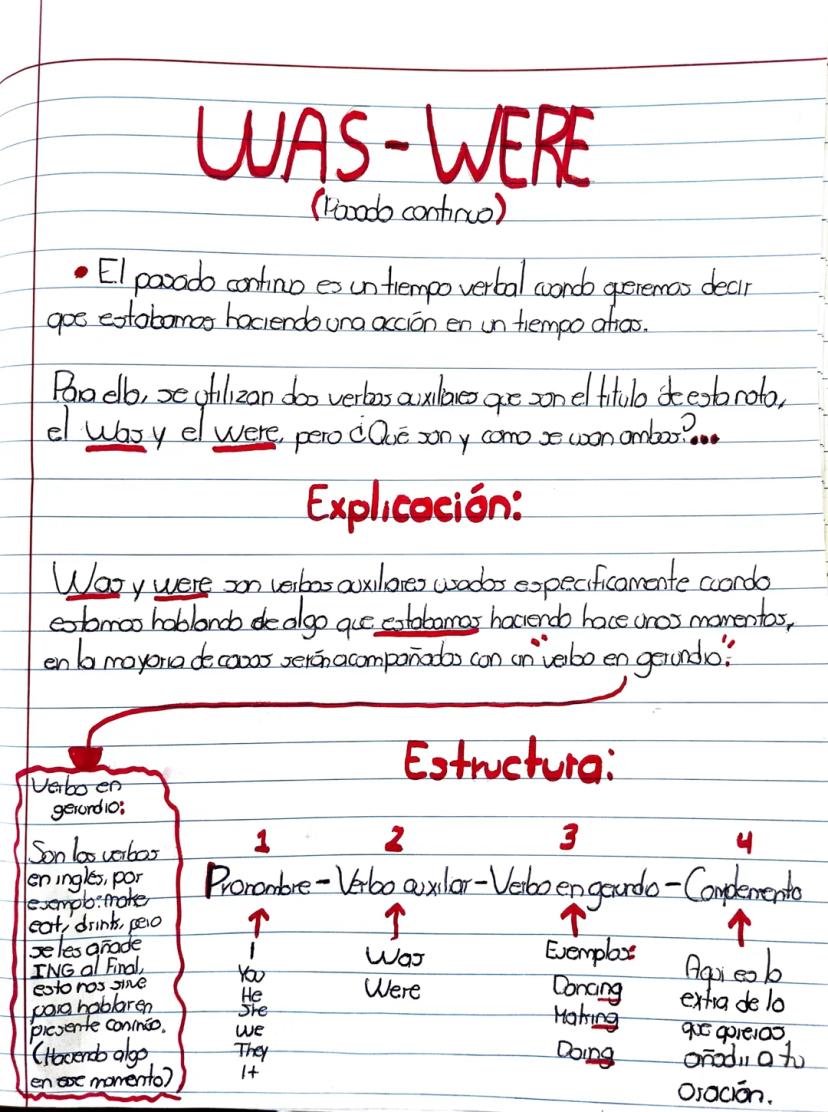 WAS-WERE
(Pasado continuo)
• El pasado continuo es un tiempo verbal cuando queremos decir
que estabamos haciendo una acción en un tiempo atras.
Para ello, se utilizan dos verbos auxiliares que son el titulo de esta nota,
el Was y el were, pero ¿Qué son y como se usan ambos?...
Explicación:
Was y were son verbos auxiliares usados especificamente cuando
estamos hablando de algo que estabamos haciendo hace unos momentos,
en la mayoria de casos serán acompañados con un "verbo en gerundio".
Estructura:
Verbo en
gerundio:
Son los verbos
en inglés, por
exemplo: make
eat, drink, pero
se les añade
ING al final,
esto nos sirve
para hablar en
presente continúo.
(Haciendo algo
en ese momento)
1 2 3 4
Pronombre - Verbo auxiliar - Verbo en gerundio - Complemento
I
You
He
She
We
They
It
Was
Were
Ejemplos:
Dancing
Making
Doing
Aqui es lo
extra de lo
que quieras
añadir a tu
oración.